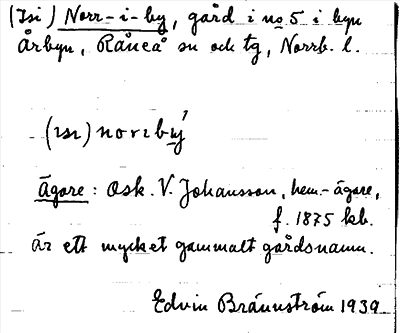 (Isi) Norr-i-by, gård i no 5 i byn
Årbyn, Råneå sn och tg, Norrb. l.
(ısı) norɩbý
Ägare: Osk. V. Johansson, hem.-ägare,
f. 1875 kb.
Är ett mycket gammalt gårdsnamn.
Edvin Brännström 1939